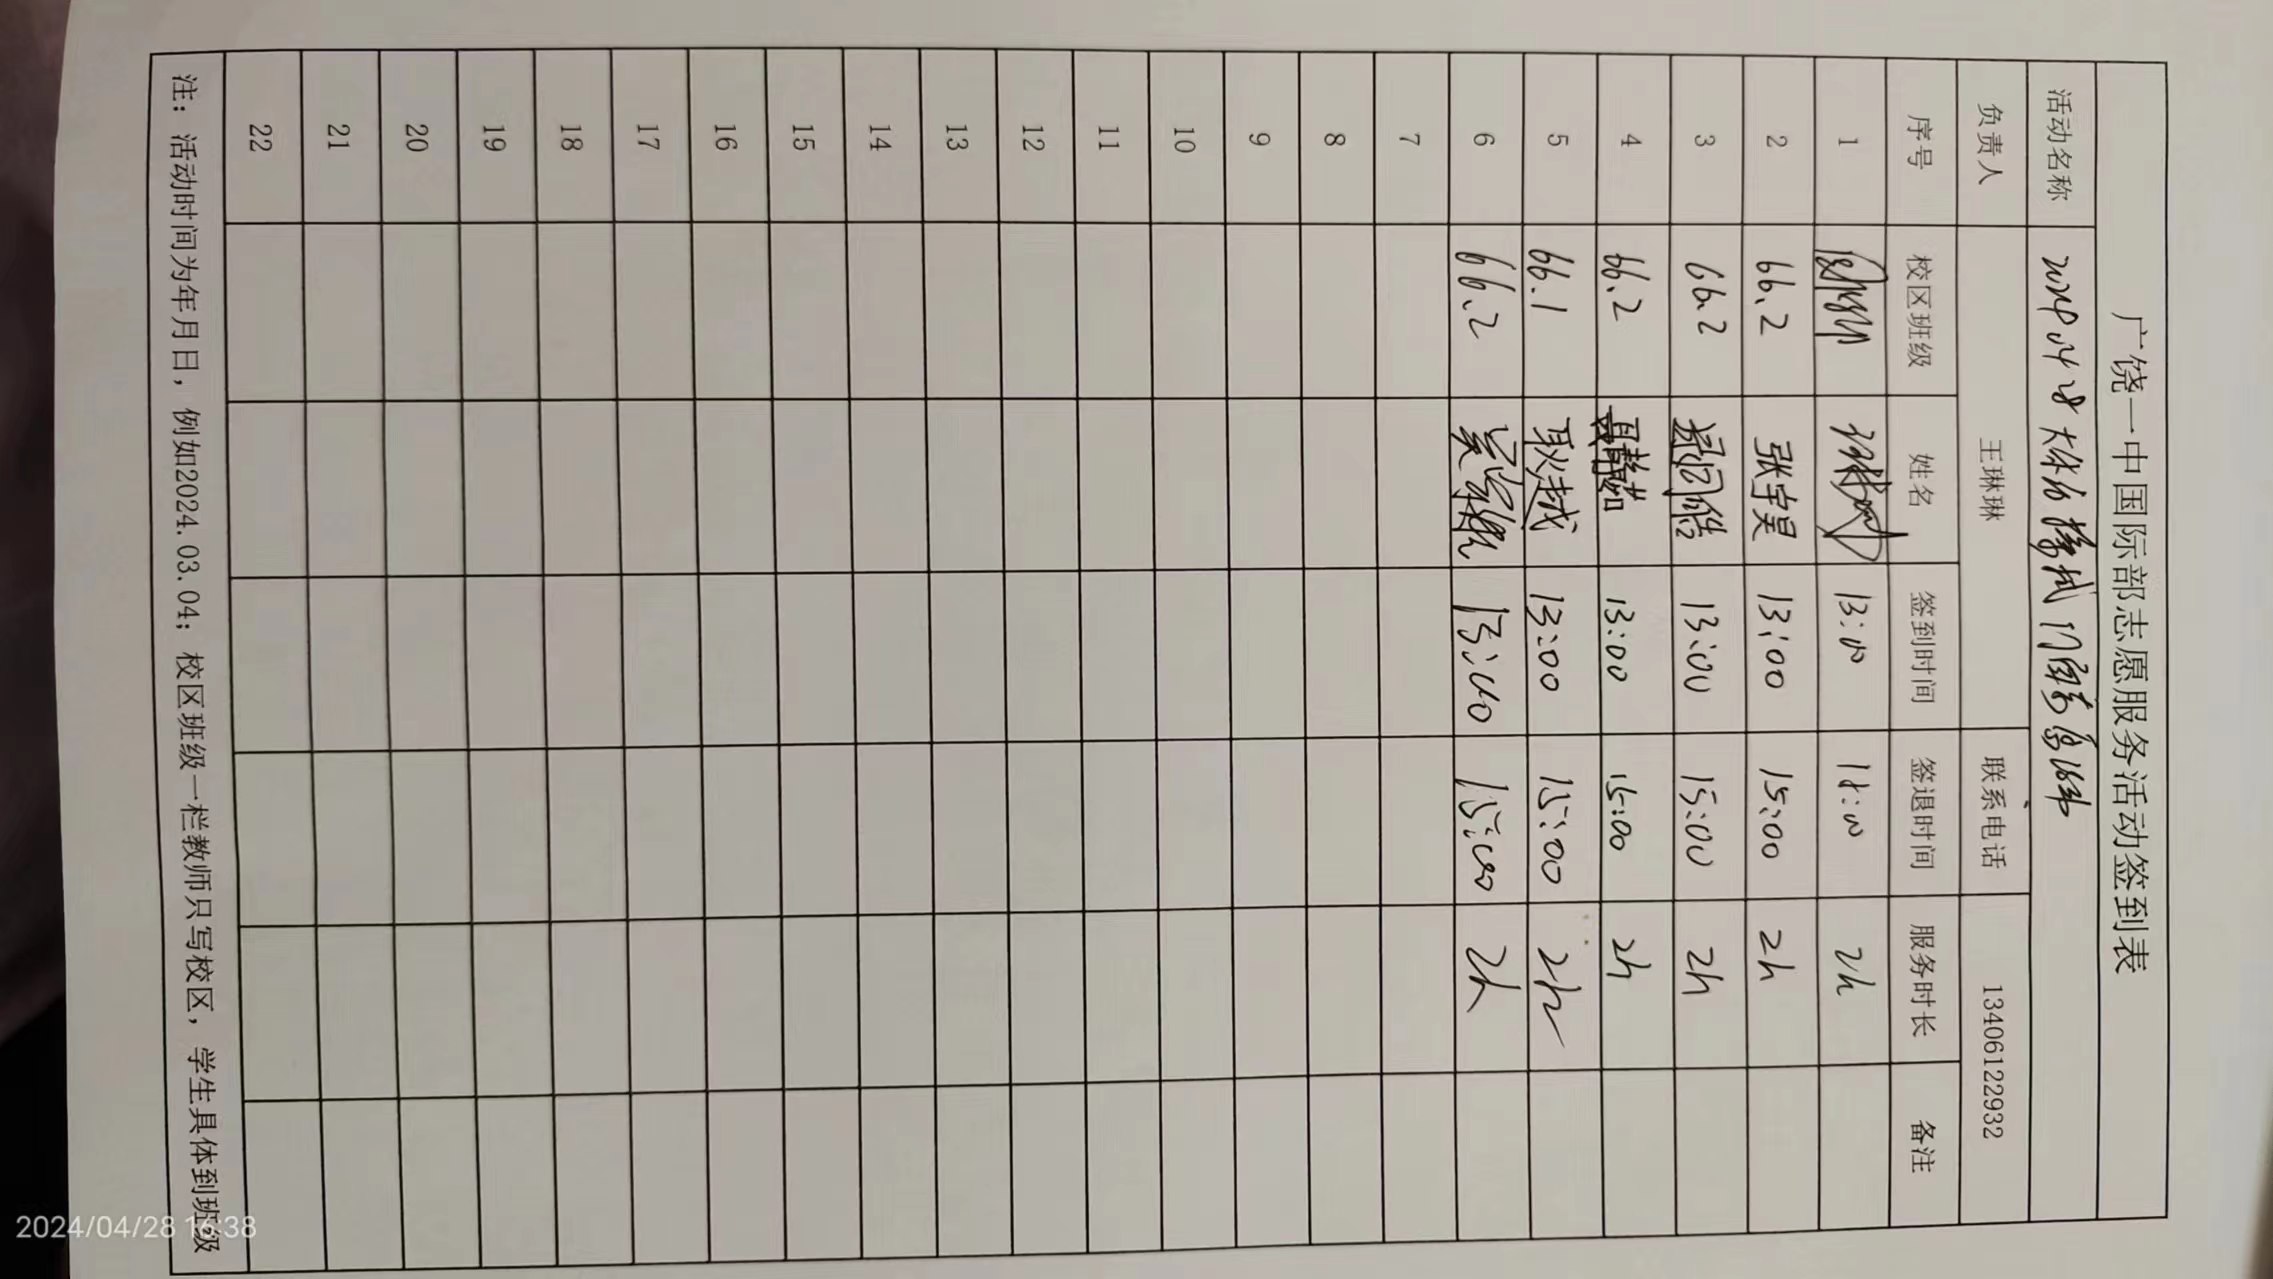 广饶一中国际部志愿服务活动签到表
活动名称 2024 04 28
负责人 王琳琳 联系电话 13406122932
序号 校区班级 姓名 签到时间 签退时间 服务时长 备注
1 13:00 2h
2 66.2 张宇昊 13:00 15:00 2h
3 66.2 13:00 15:00 2h
4 66.2 13:00 15:00 2h
5 66.1 13:00 15:00 2h
6 66.2 13:00 15:00 2h
7
8
9
10
11
12
13
14
15
16
17
18
19
20
21
22
注：活动时间为年月日，例如2024.03.04；校区班级一栏教师只写校区，学生具体到班级
2024/04/28 16:38